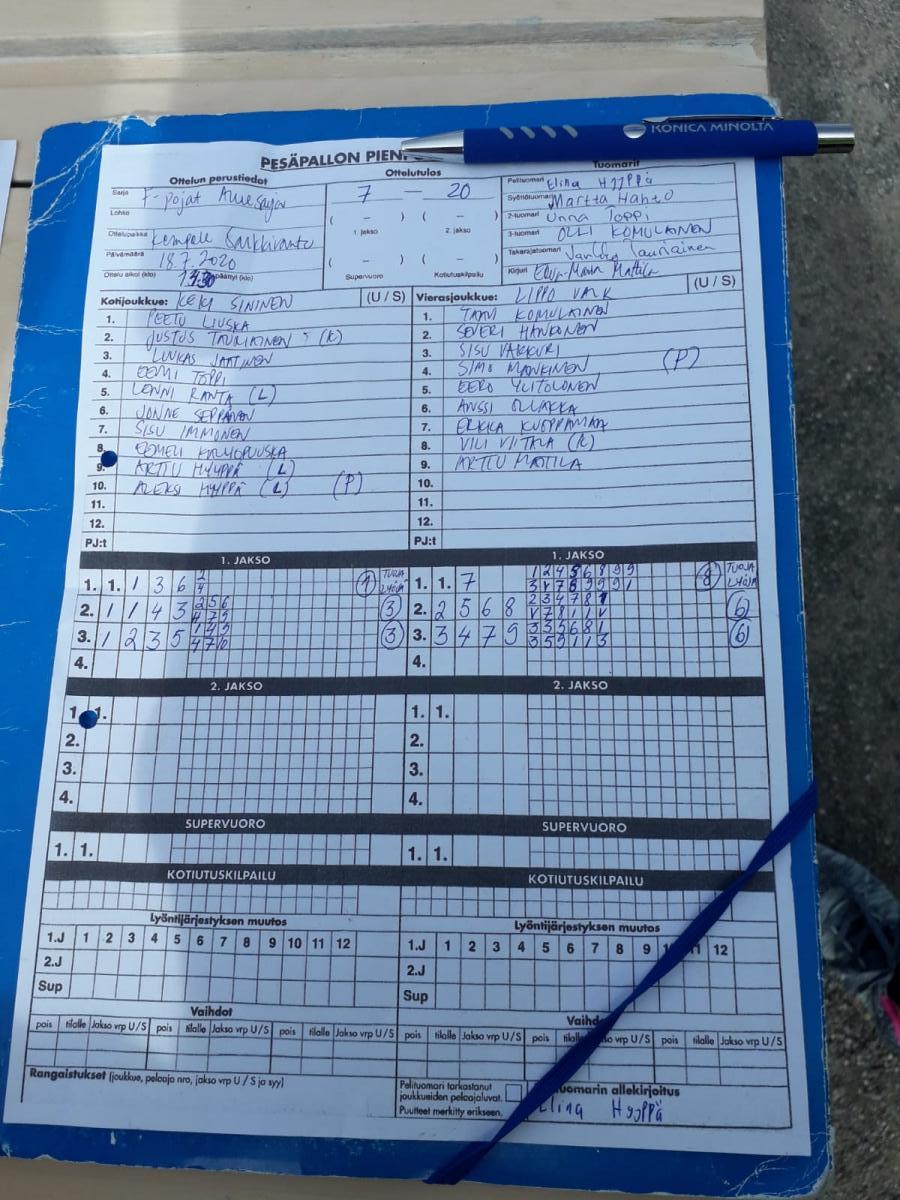 KONICA MINOLTA
PESÄPALLON
Ottelun perustiedot
Ottelutulos
Tuomarit
Sarja F-pojat Aluesarja
7 — 20
Pelituomari Elina Hyppä
Lohko
( – ) ( – )
Syöttötuomari Martta Hahto
2-tuomari Unna Toppi
Ottelupaikka Kempele Sarkkiranta
1. jakso 2. jakso
3-tuomari OLLI KOMULAINEN
Päivämäärä 18.7.2020
( – ) ( – )
Takarajatuomari Tauriainen
Ottelu alkoi (klo) päättyi (klo)
Supervuoro Kotiutuskilpailu
Kirjuri Mattila
Kotijoukkue: KEKI SININEN (U / S)
1. PEETU LIUSKA
2. JUSTUS TAURIAINEN (K)
3. LUUKAS JAATINEN
4. EEMI TOPPI
5. LENNI RANTA (L)
6. JONNE SEPPÄNEN
7. SISU IMMONEN
8. EEMELI KALLIOPUUSKA
9. ARTTU HYYPPÄ (L)
10. ALEKSI HYYPPÄ (L) (P)
11.
12.
PJ:t
Vierasjoukkue: LIPPO VALK (U / S)
1. TAAVI KOMULAINEN
2. SEVERI HANKONEN
3. SISU VAKKURI
4. SIMO MANKINEN (P)
5. EERO YLITOLONEN
6. ANSSI OLLAKKA
7. ERKKA KUOPPAMAA
8. VILI VIITALA (K)
9. ARTTU MATTILA
10.
11.
12.
PJ:t
1. JAKSO
1. 1. 1 3 6 2 1 TUOJA
4 LYÖJÄ
2. 1 1 4 3 2 5 6 3
4 7 9
3. 1 2 3 5 3
4 7 10
4.
1. JAKSO
1. 1. 7 1 2 4 5 6 8 9 9 8 TUOJA
3 V 7 8 9 9 9 1 LYÖJÄ
2. 2 5 6 8 2 3 4 7 8 1 6
V 7 8 1 1 V
3. 3 4 7 9 3 3 5 6 8 1 6
3 5 9 1 1 3
4.
2. JAKSO
1. 1.
2.
3.
4.
2. JAKSO
1. 1.
2.
3.
4.
SUPERVUORO
1. 1.
SUPERVUORO
1. 1.
KOTIUTUSKILPAILU
KOTIUTUSKILPAILU
Lyöntijärjestyksen muutos
1.J 1 2 3 4 5 6 7 8 9 10 11 12
2.J
Sup
Lyöntijärjestyksen muutos
1.J 1 2 3 4 5 6 7 8 9 12
2.J
Sup
Vaihdot
pois tilalle Jakso vrp U/S pois tilalle Jakso vrp U/S pois tilalle Jakso vrp U/S
pois tilalle Jakso vrp U/S pois tilalle vrp U/S pois tilalle Jakso vrp U/S
Rangaistukset (joukkue, pelaaja nro, jakso vrp U / S ja syy)
Pelituomari tarkastanut
joukkueiden pelaajaluvat.
Puutteet merkitty erikseen.
tuomarin allekirjoitus
Elina Hyppä